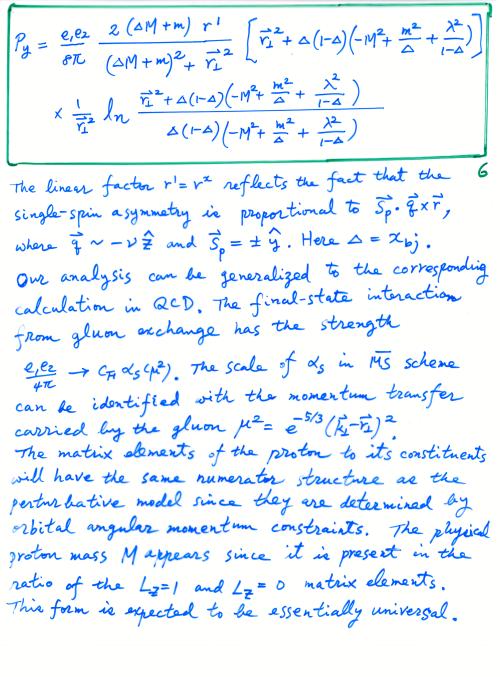 P_y = e₁e₂/8π 2(ΔM+m) r¹/((ΔM+m)²+ r⃗⊥²) [r⃗⊥²+Δ(1-Δ)(-M²+ m²/Δ + λ²/(1-Δ))]
× 1/r⃗⊥² ln (r⃗⊥²+Δ(1-Δ)(-M²+ m²/Δ + λ²/(1-Δ)))/(Δ(1-Δ)(-M²+ m²/Δ + λ²/(1-Δ)))
6
The linear factor r¹=rˣ reflects the fact that the
single-spin asymmetry is proportional to S⃗p·q⃗×r⃗,
where q⃗ ~ -νẑ and S⃗p = ±ŷ. Here Δ = x_bj.
Our analysis can be generalized to the corresponding
calculation in QCD. The final-state interaction
from gluon exchange has the strength
e₁e₂/4π → C_F α_s(μ²). The scale of α_s in M̅S̅ scheme
can be identified with the momentum transfer
carried by the gluon μ² = e^(-5/3) (k⃗⊥-r⃗⊥)².
The matrix elements of the proton to its constituents
will have the same numerator structure as the
perturbative model since they are determined by
orbital angular momentum constraints. The physical
proton mass M appears since it is present in the
ratio of the L_z=1 and L_z=0 matrix elements.
This form is expected to be essentially universal.